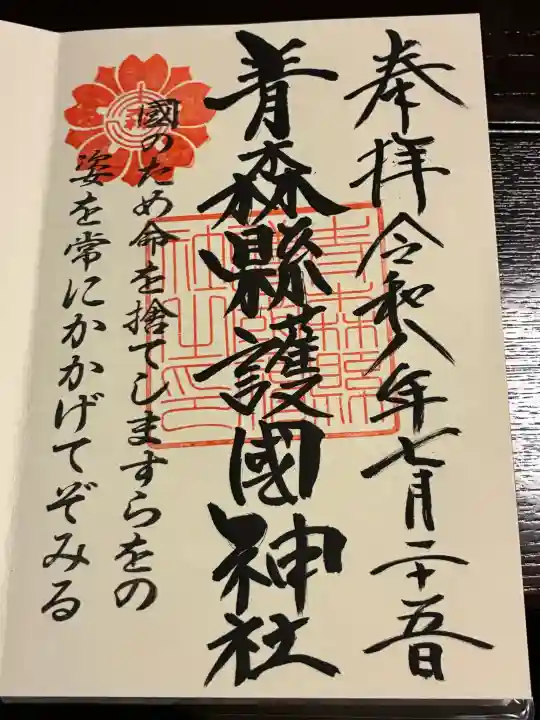 奉拝 令和八年七月二十五日
青森縣護國神社
國のため命を捨てしますらをの
姿を常にかかげてぞみる